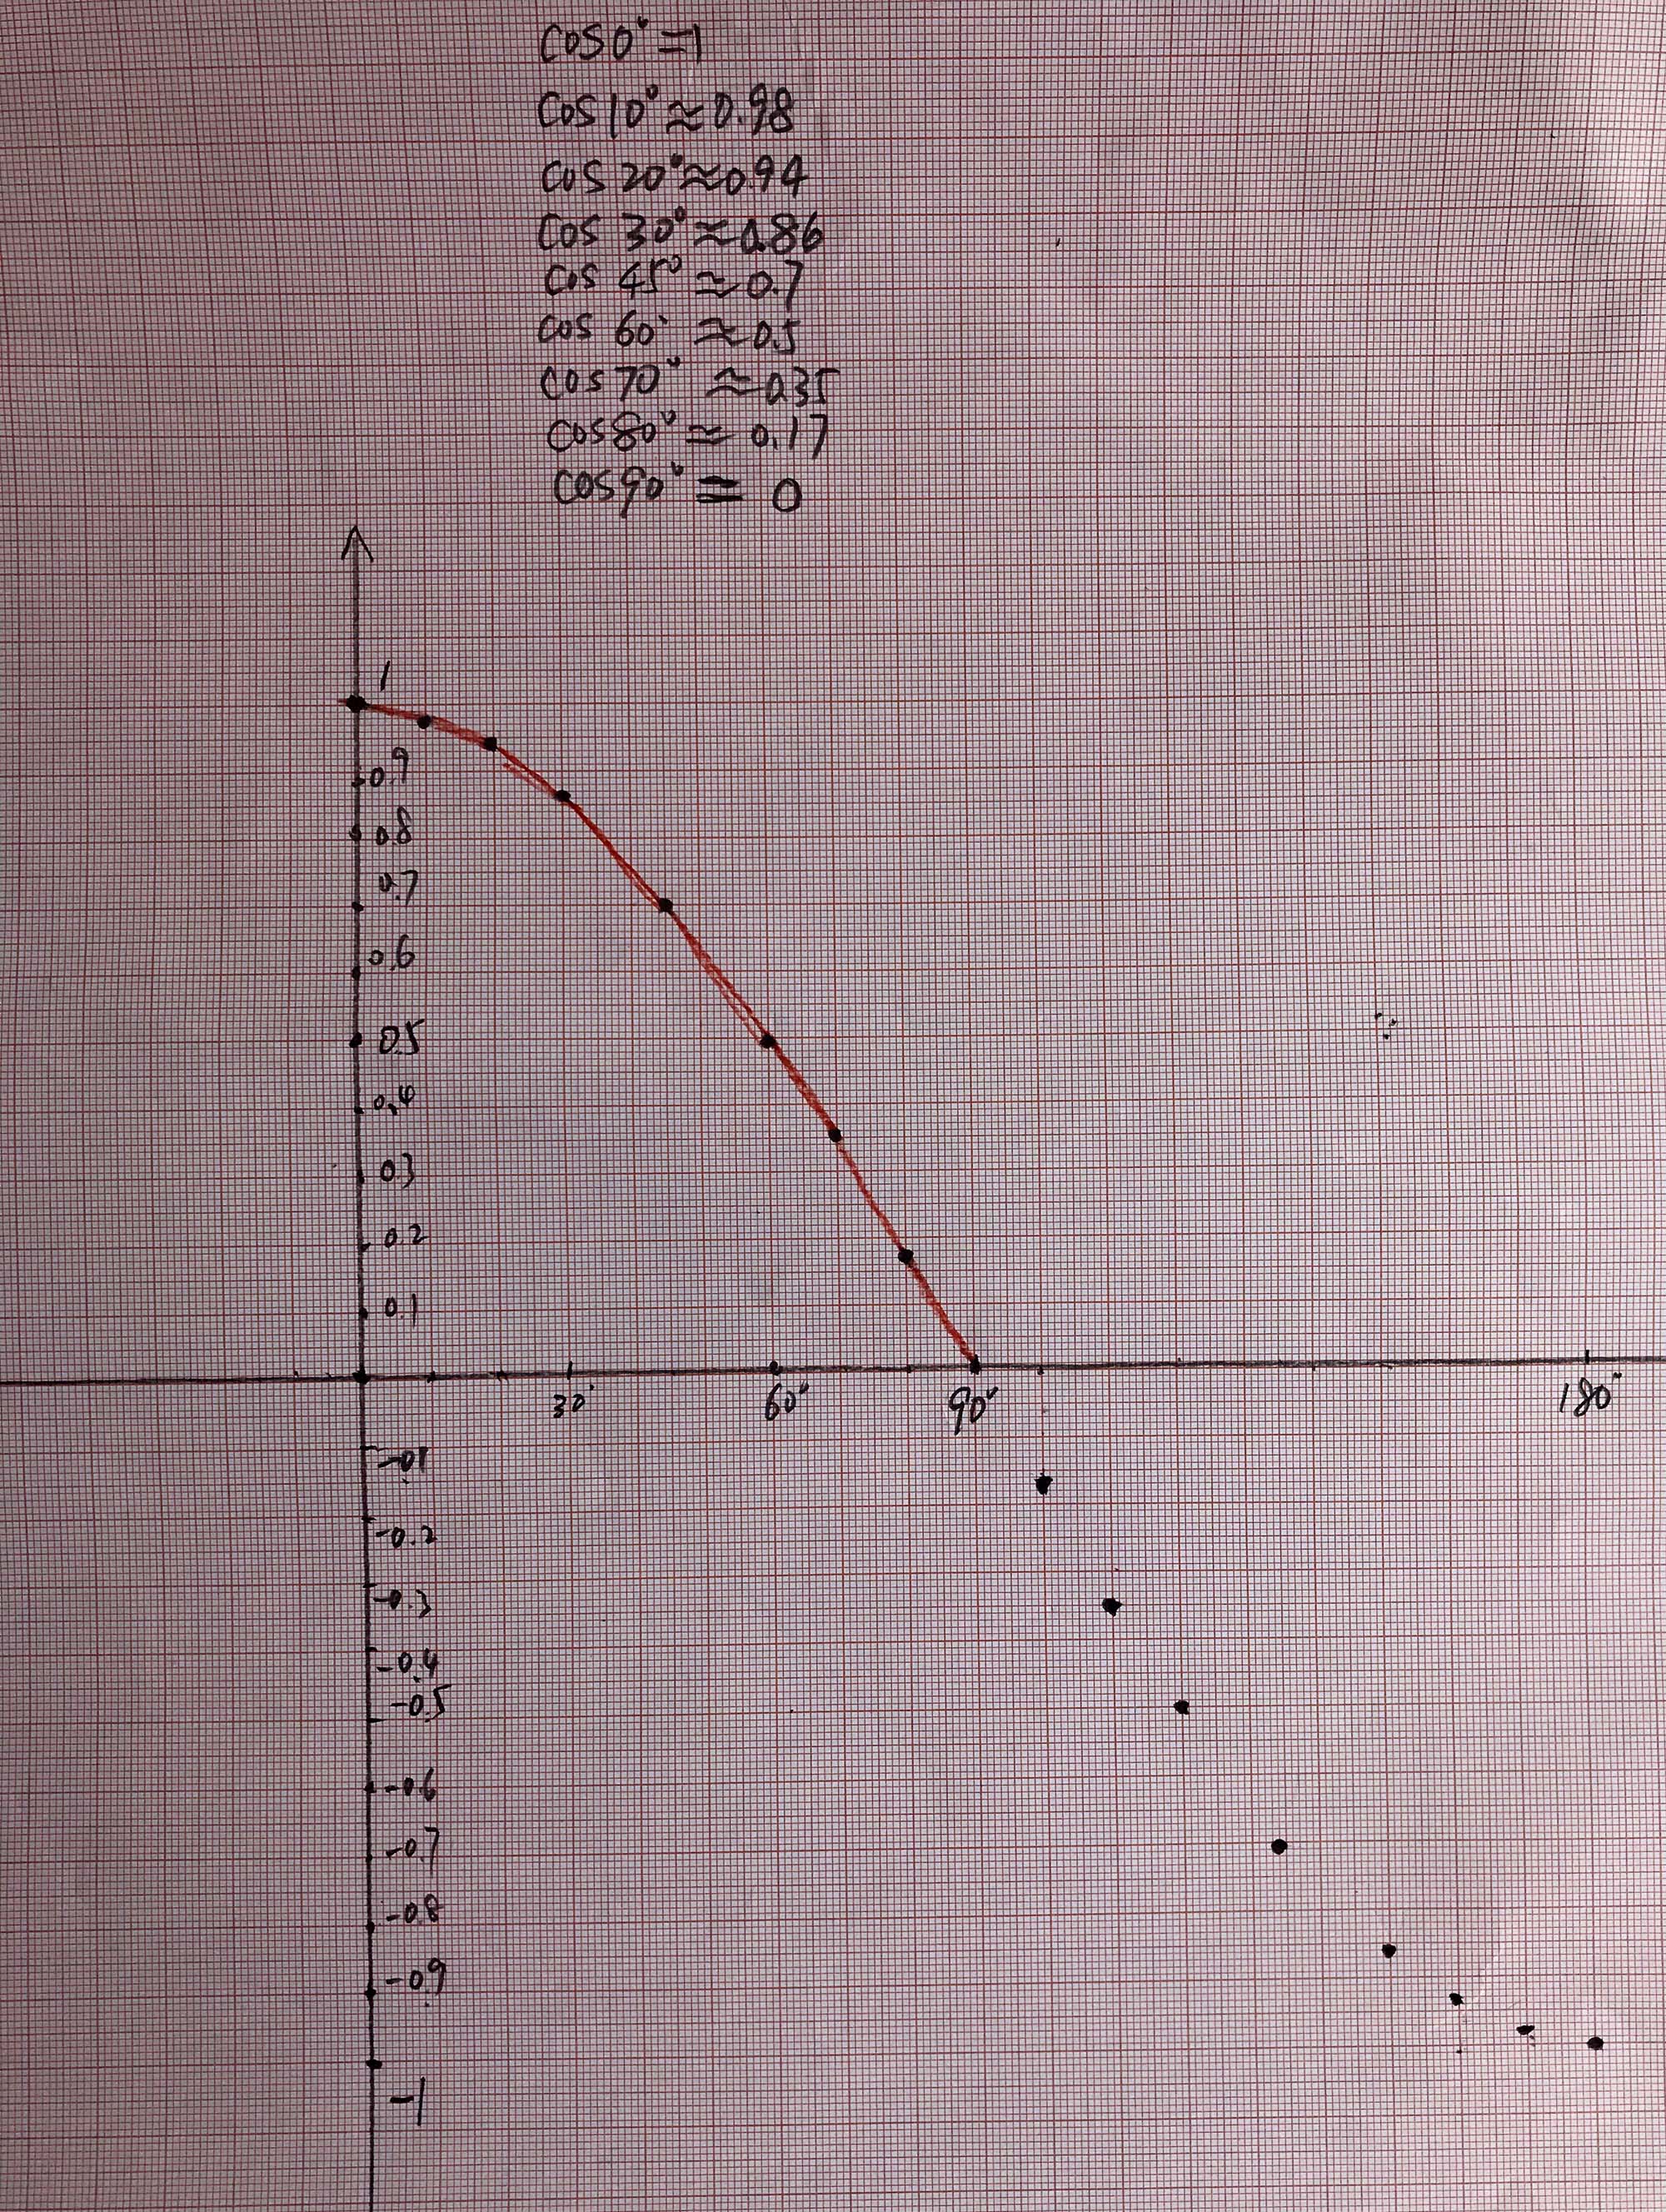 cos0°=1
cos10°≈0.98
cos20°≈0.94
cos30°≈0.86
cos45°≈0.7
cos60°≈0.5
cos70°≈0.35
cos80°≈0.17
cos90°=0
1
0.9
0.8
0.7
0.6
0.5
0.4
0.3
0.2
0.1
30° 60° 90° 180°
-0.1
-0.2
-0.3
-0.4
-0.5
-0.6
-0.7
-0.8
-0.9
-1